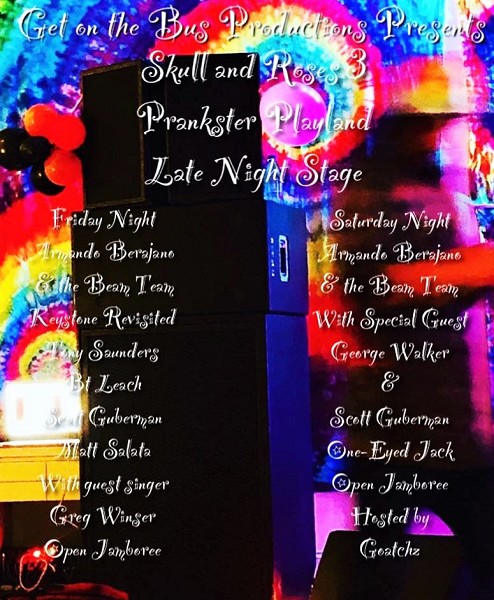 Get on the Bus Productions Presents
Skull and Roses 3
Prankster Playland
Late Night Stage
Friday Night
Armando Berajano
& the Beam Team
Keystone Revisited
Tony Saunders
Bt Leach
Scott Guberman
Matt Salata
With guest singer
Greg Winser
Open Jamboree
Saturday Night
Armando Berajano
& the Beam Team
With Special Guest
George Walker
&
Scott Guberman
One-Eyed Jack
Open Jamboree
Hosted by
Goatchz